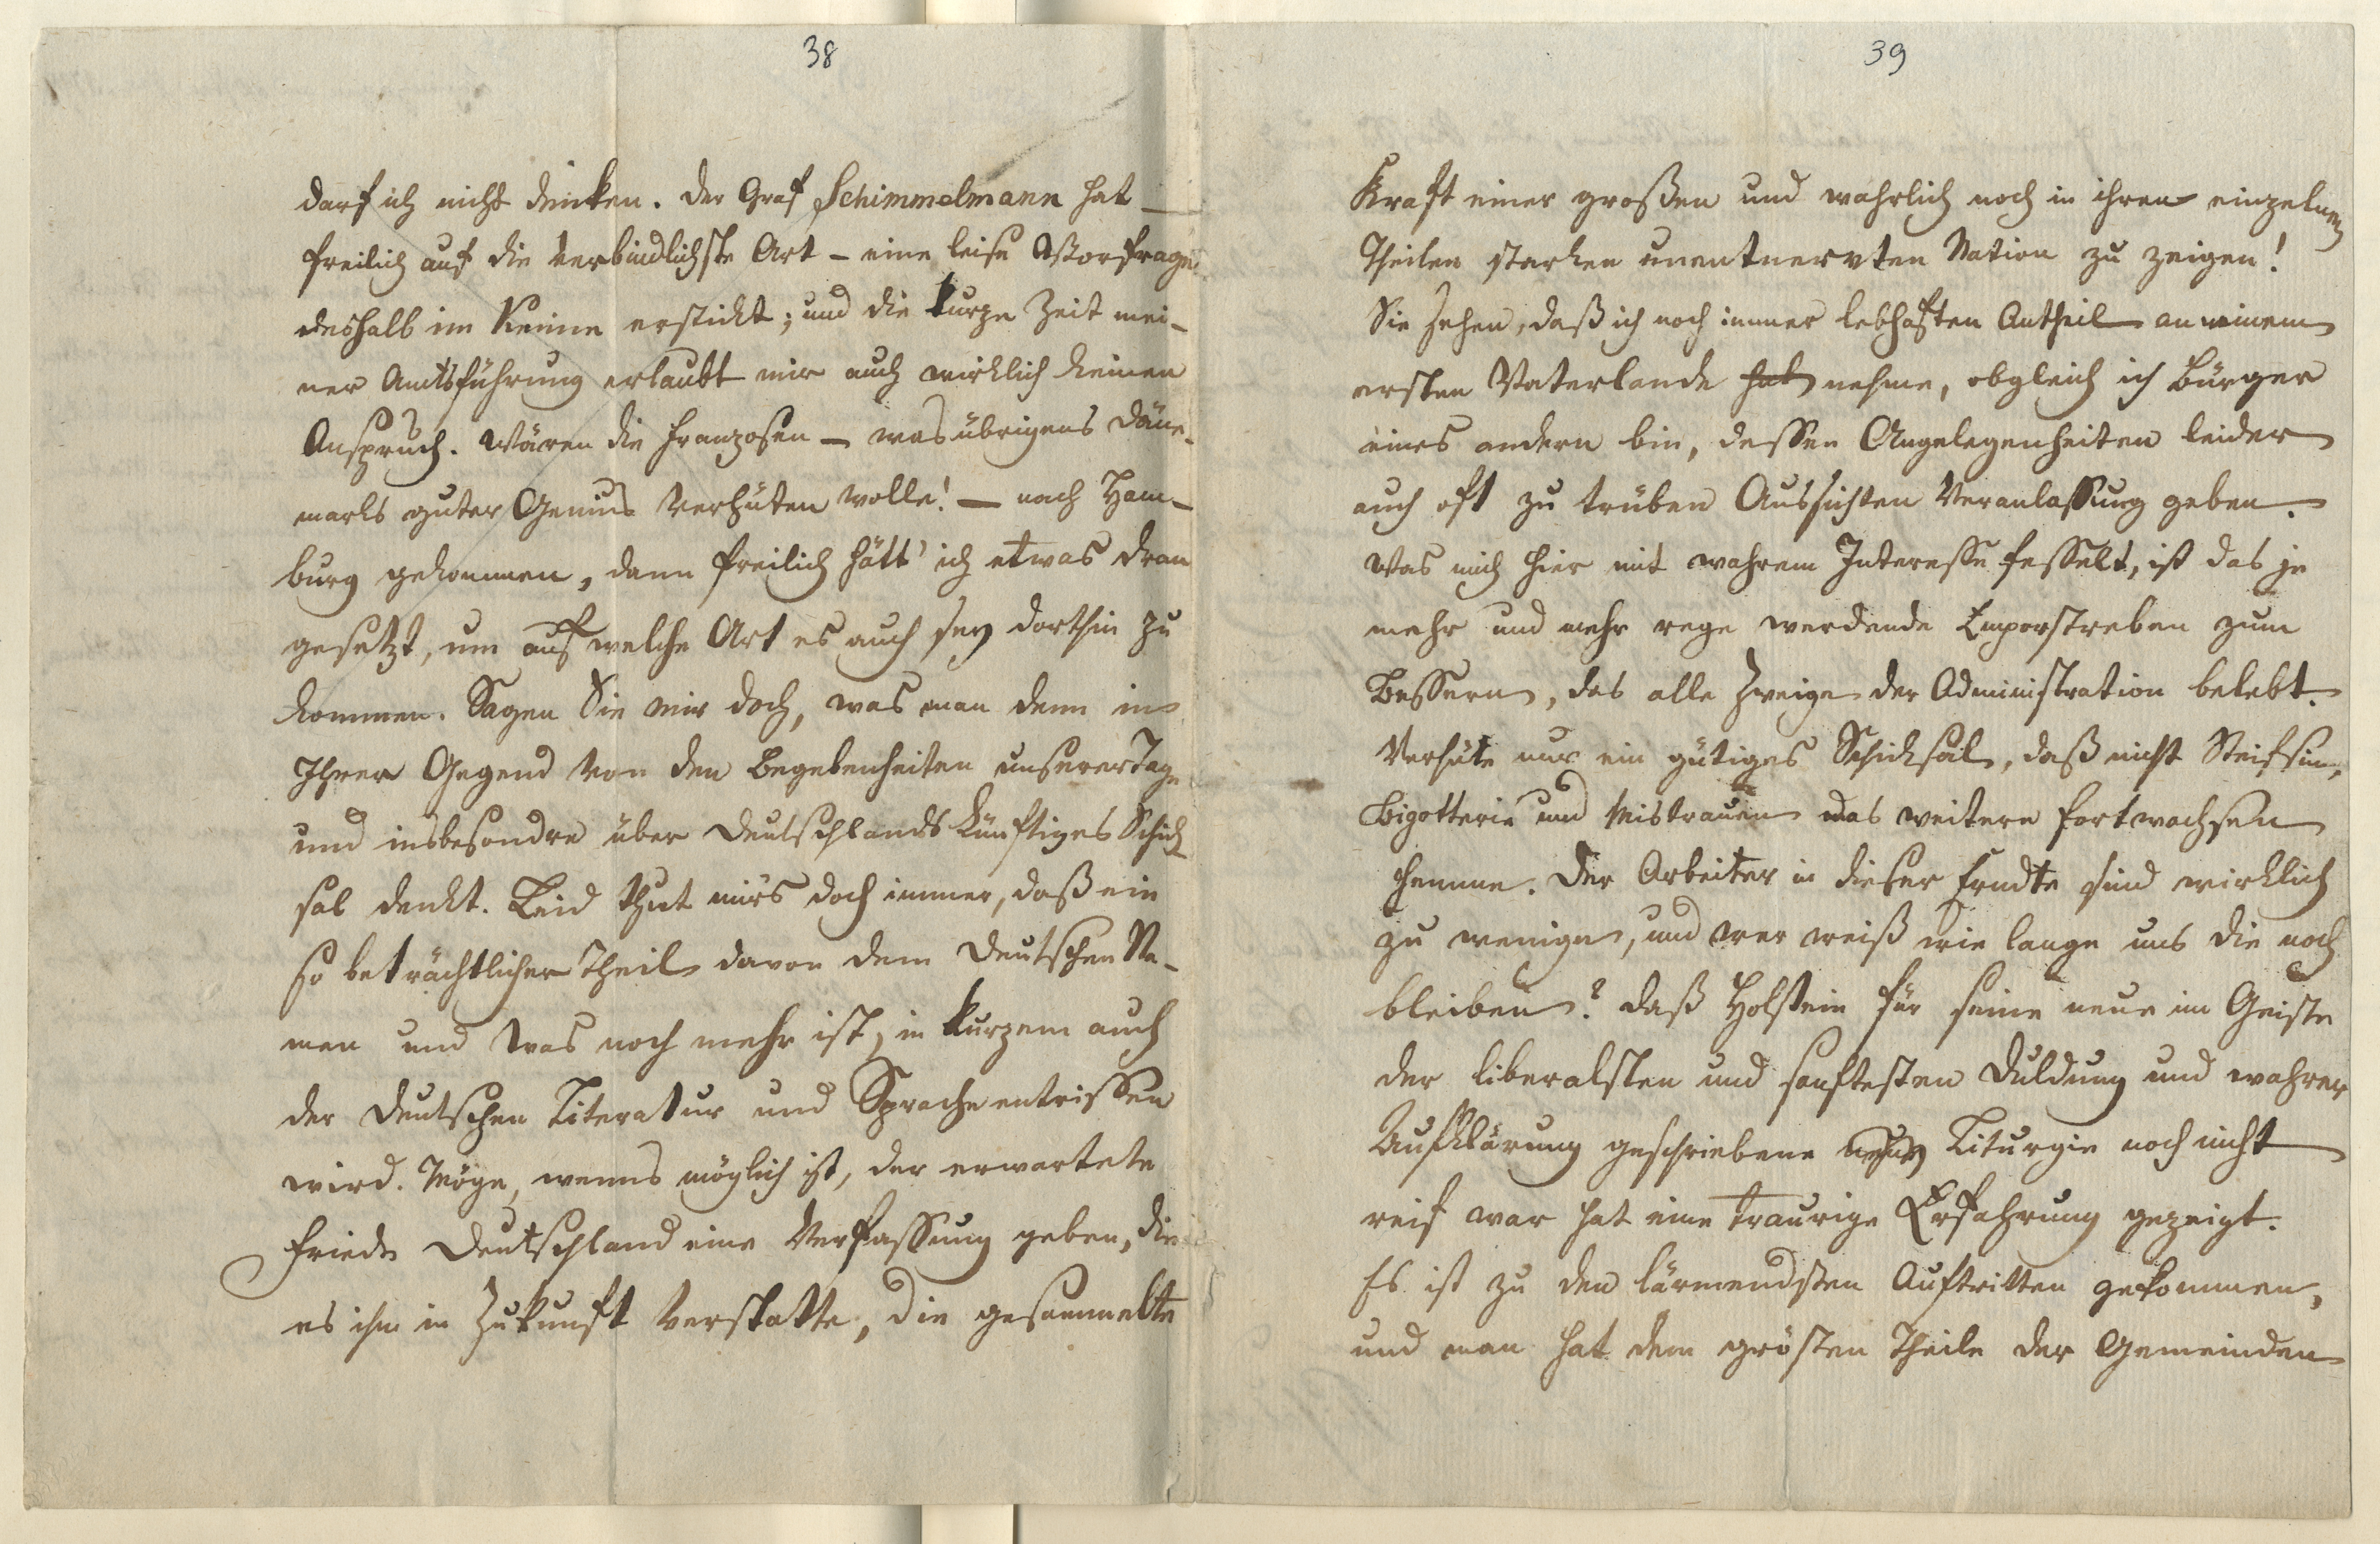 38
darf ich nicht denken. Der Graf Schimmelmann hat –
freilich auf die verbindlichste Art – eine leise Vorfrage
deshalb im Keime erstickt; und die kurze Zeit mei-
ner Amtsführung erlaubt mir auch wirklich keinen
Anspruch. Wären die Franzosen – was übrigens Däne-
marks guter Genius verhüten wolle! – nach Ham-
burg gekommen, dann freilich hätt' ich etwas dran
gesetzt, um auf welche Art es auch sey dorthin zu
kommen. Sagen Sie mir doch, was man denn in
Ihrer Gegend von den Begebenheiten unserer Tage
und insbesondre über Deutschlands künftiges Schick-
sal denkt. Leid thut mirs doch immer, daß ein
so beträchtlicher Theil davon dem Deutschen Na-
men und was noch mehr ist, in kurzem auch
der deutschen Literatur und Sprache entrissen
wird. Möge, wenns möglich ist, der erwartete
Friede Deutschland eine Verfassung geben, die
es ihm in Zukunft verstatte, die gesammelte
39
Kraft einer großen und wahrlich noch in ihren einzelnen
Theilen starken unentnervten Nation zu zeigen!
Sie sehen, daß ich noch immer lebhaften Antheil an meinem
ersten Vaterlande hab nehme, obgleich ich Bürger
eines andern bin, dessen Angelegenheiten leider
auch oft zu trüben Aussichten Veranlassung geben.
Was mich hier mit wahrem Interesse fesselt, ist das je
mehr und mehr rege werdende Emporstreben zum
Bessern, das alle Zweige der Administration belebt.
Verhüte nur ein gütiges Schicksal, daß nicht Steifsinn,
Bigotterie und Mistrauen das weitere Fortwachsen
hemme. Der Arbeiter in dieser Erndte sind wirklich
zu wenige, und wer weiß wie lange uns die noch
bleiben? Daß Holstein für seine neue im Geiste
der liberalsten und sanftesten Duldung und wahrer
Aufklärung geschriebene Liturgie noch nicht
reif war hat eine traurige Erfahrung gezeigt.
Es ist zu den lärmendsten Auftritten gekommen,
und man hat dem grösten Theile der Gemeinden